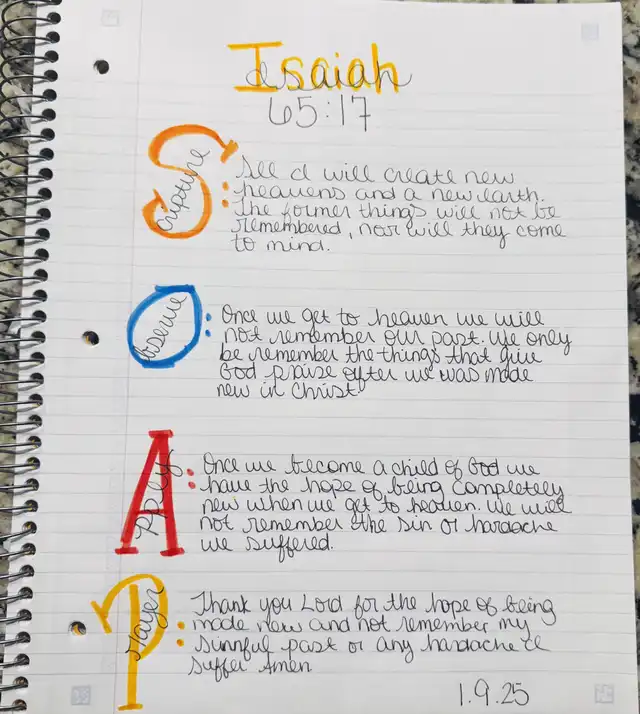 Isaiah
65:17
Scripture: See I will create new
heavens and a new earth.
The former things will not be
remembered, nor will they come
to mind.
Observe: Once we get to heaven we will
not remember our past. We only
be remember the things that give
God praise after we was made
new in Christ.
Apply: Once we become a child of God we
have the hope of being completely
new when we get to heaven. We will
not remember the sin or hardache
we suffered.
Prayer: Thank you Lord for the hope of being
made new and not remember my
sinnful past or any hardache I'll
suffer Amen
1.9.25